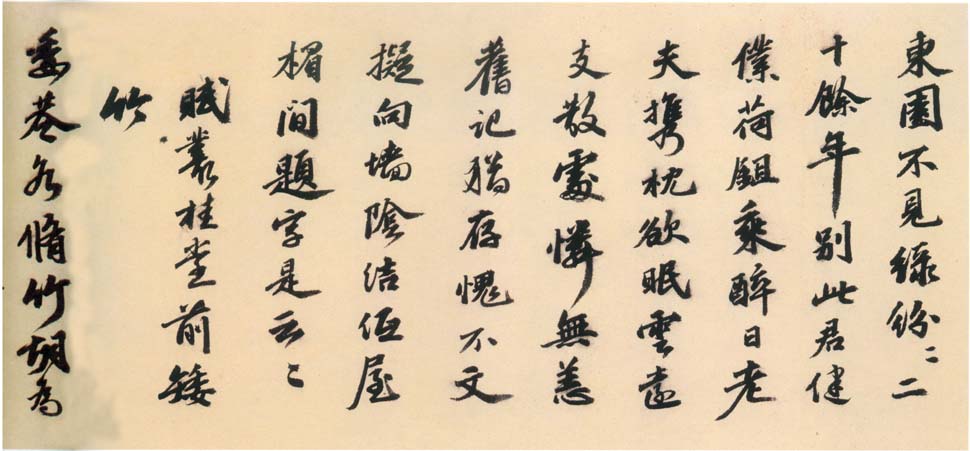 東園不見緑紛〻二
十餘年別此君健
僕荷鉏乘醉日老
夫攜枕欲眠雲遠
支散處憐無恙
舊記猶存愧不文
擬向墻陰結低屋
楣間題字是云〻
賦叢桂堂前矮
竹
委巷脩竹胡為